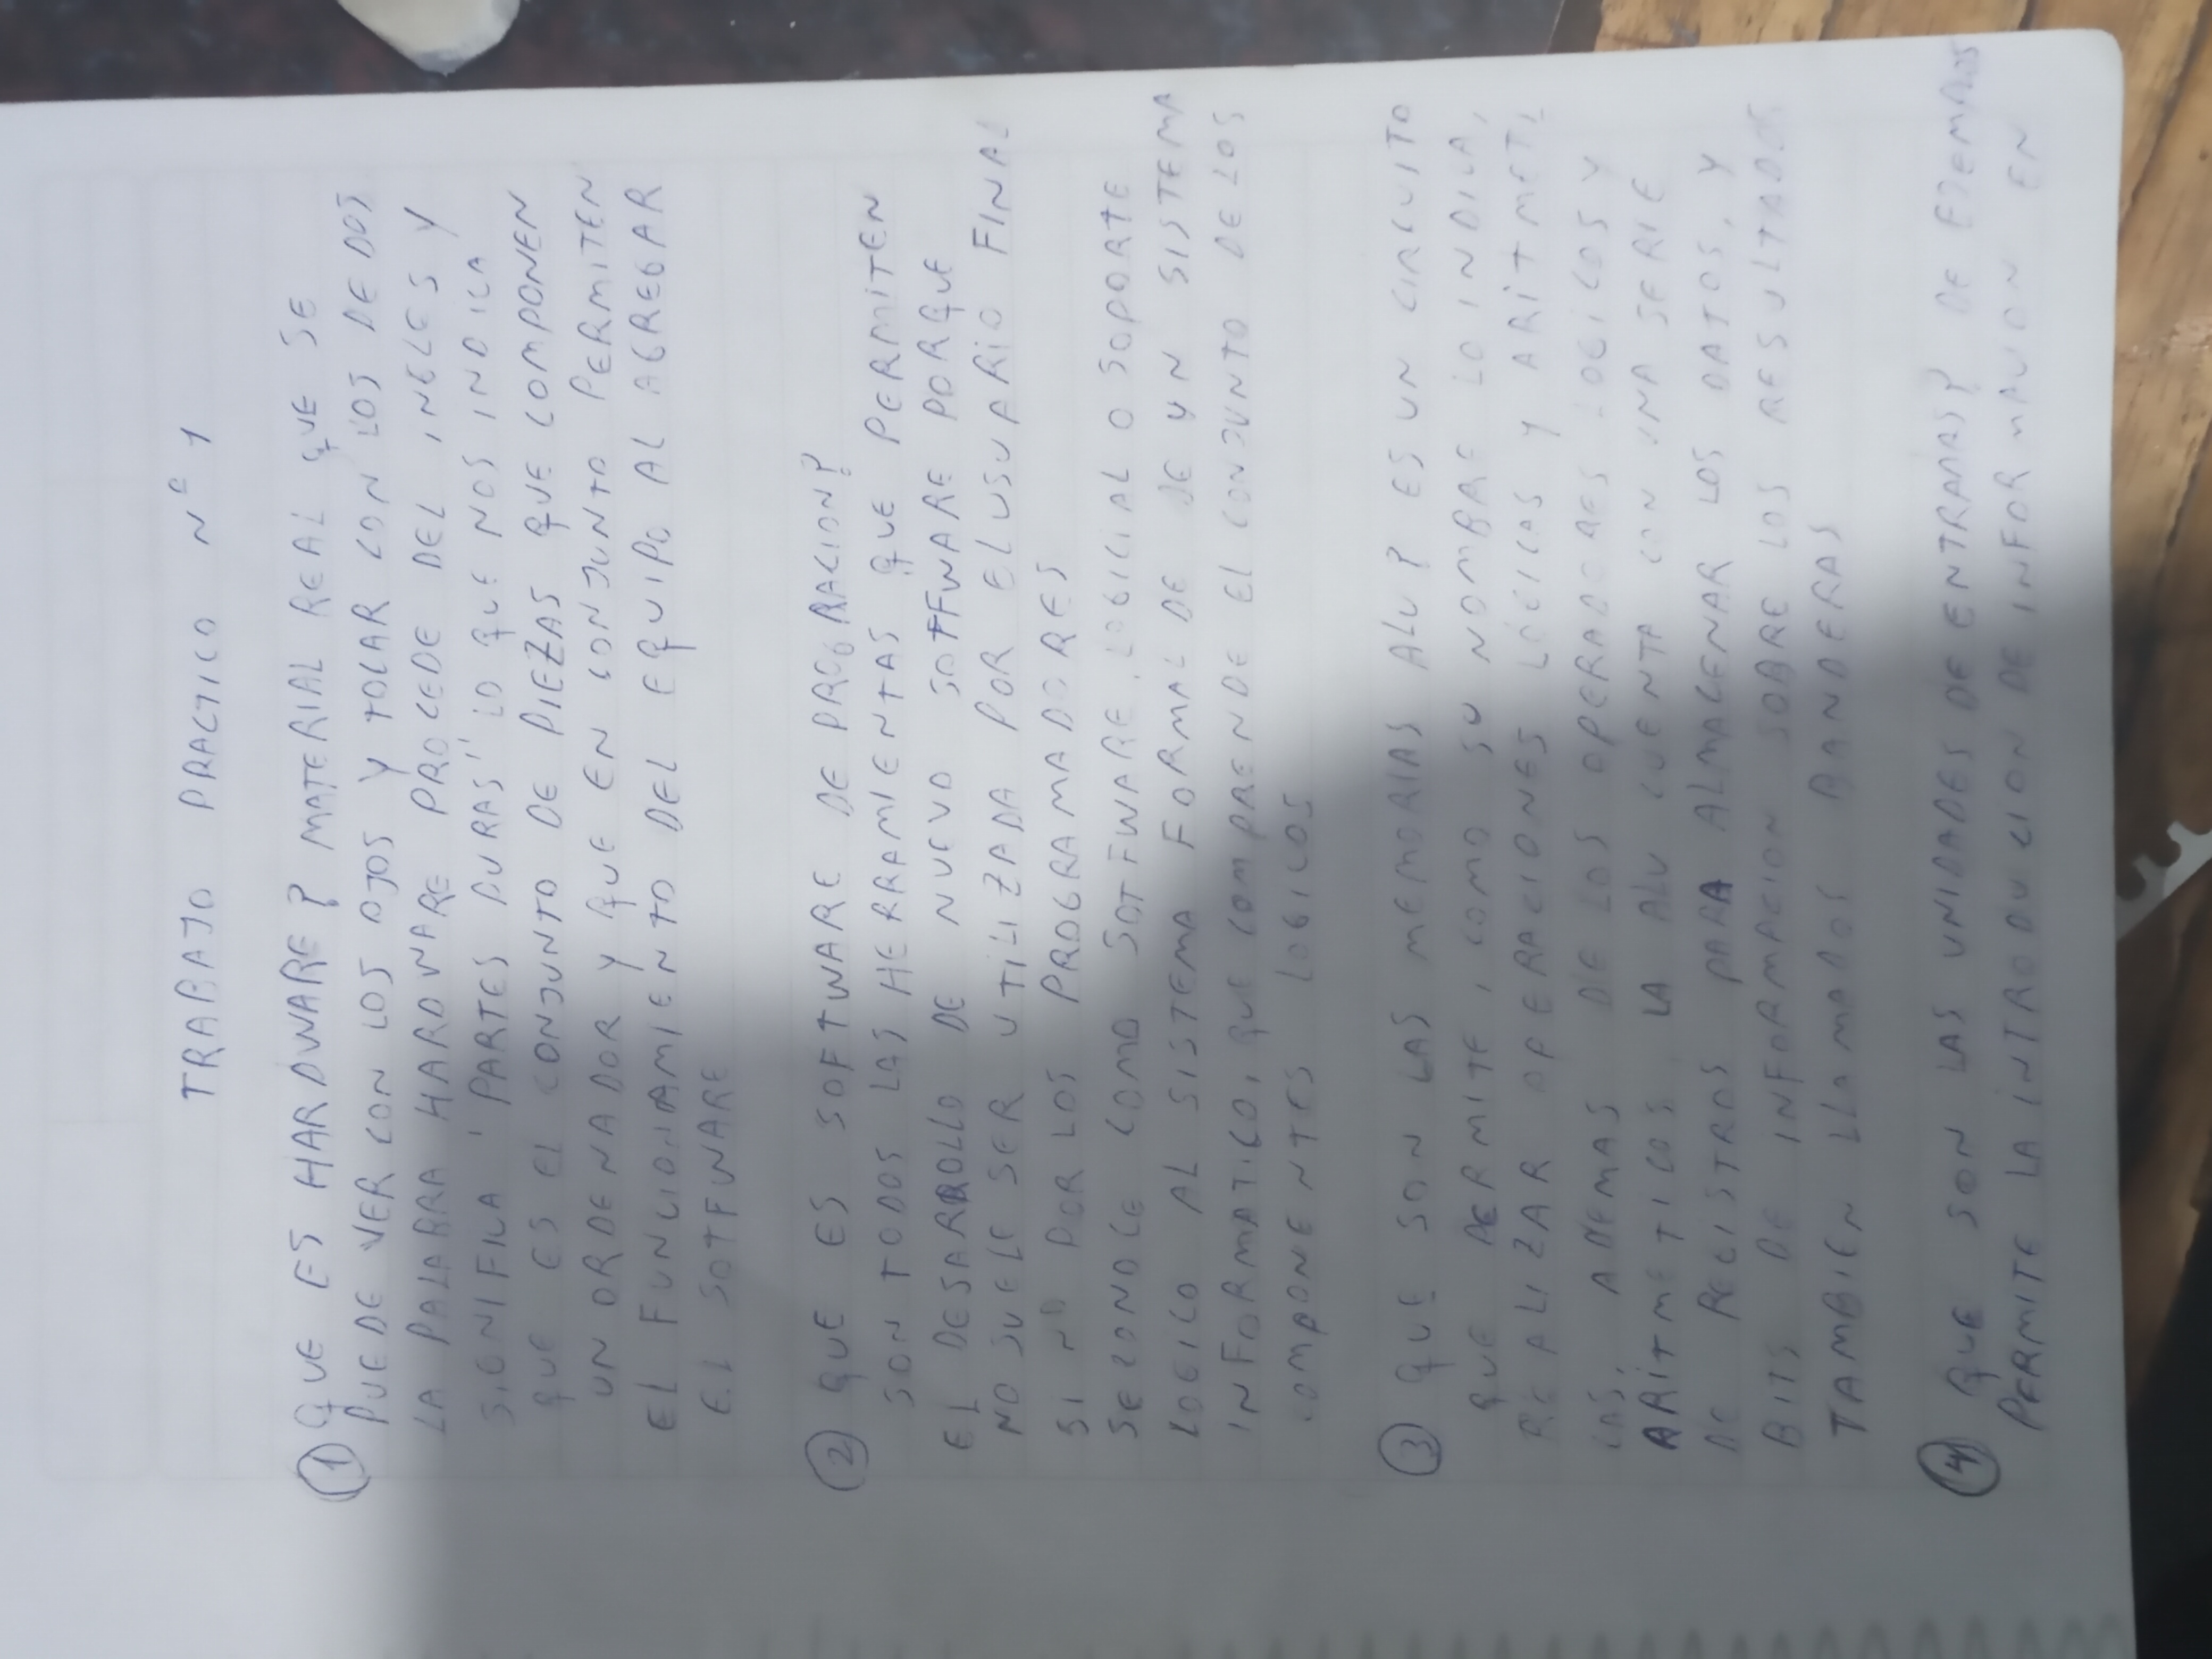 TRABAJO PRACTICO Nº 1
① QUE ES HARDWARE? MATERIAL REAL QUE SE
PUEDE VER CON LOS OJOS Y TOCAR CON LOS DEDOS
LA PALABRA HARDWARE PROCEDE DEL INGLES Y
SIGNIFICA "PARTES DURAS" LO QUE NOS INDICA
QUE ES EL CONJUNTO DE PIEZAS QUE COMPONEN
UN ORDENADOR Y QUE EN CONJUNTO PERMITEN
EL FUNCIONAMIENTO DEL EQUIPO AL AGREGAR
EL SOTFWARE
② QUE ES SOFTWARE DE PROGRACION?
SON TODOS LAS HERRAMIENTAS QUE PERMITEN
EL DESARROLLO DE NUEVO SOTFWARE PORQUE
NO SUELE SER UTILIZADA POR EL USUARIO FINAL
SI NO POR LOS PROGRAMADORES
SE CONOCE COMO SOTFWARE, LOGICIAL O SOPORTE
LOGICO AL SISTEMA FORMAL DE DE UN SISTEMA
INFORMATICO, QUE COMPRENDE EL CONJUNTO DE LOS
COMPONENTES LOGICOS
③ QUE SON LAS MEMORIAS ALU? ES UN CIRCUITO
QUE PERMITE, COMO SU NOMBRE LO INDICA,
REALIZAR OPERACIONES LOGICAS Y ARITMETI
CAS, ADEMAS DE LOS OPERADORES LOGICOS Y
ARITMETICOS, LA ALU CUENTA CON UNA SERIE
DE REGISTROS PARA ALMACENAR LOS DATOS, Y
BITS DE INFORMACION SOBRE LOS RESULTADOS
TAMBIEN LLAMADOS BANDERAS
④ QUE SON LAS UNIDADES DE ENTRADAS? DE
PERMITE LA INTRODUCCION DE INFORMACION EN